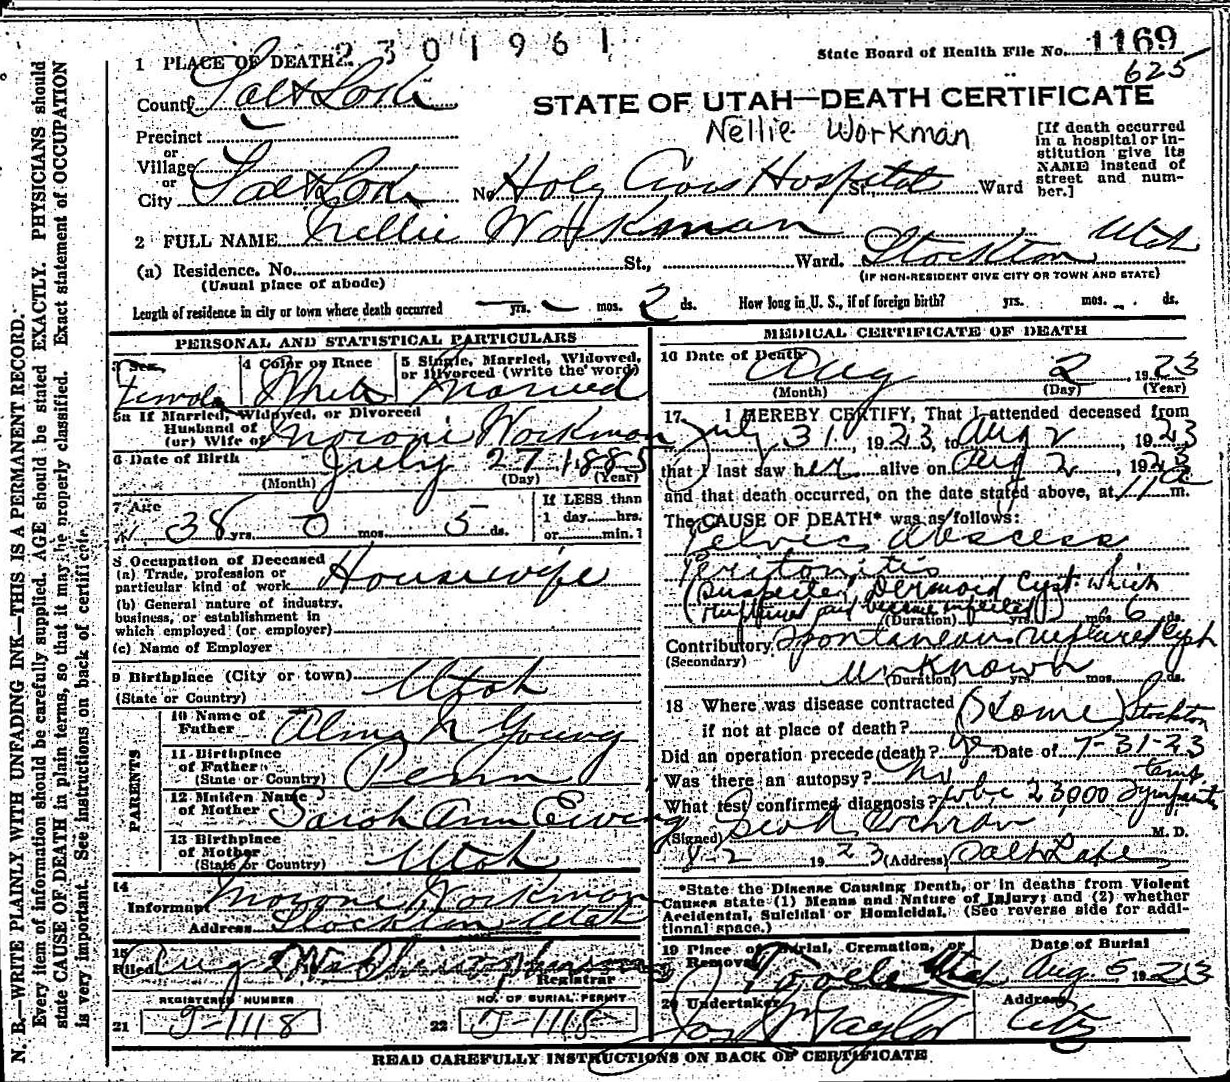 2301961
State Board of Health File No. 1169
625
1 PLACE OF DEATH
County Salt Lake
STATE OF UTAH—DEATH CERTIFICATE
Nellie Workman
Precinct
or
Village
or
City Salt Lake No. Holy Cross Hospital St. Ward
[If death occurred
in a hospital or in-
stitution give its
NAME instead of
street and num-
ber.]
2 FULL NAME Nellie Workman
(a) Residence. No. St., Ward. Stockton Utah
(Usual place of abode) (IF NON-RESIDENT GIVE CITY OR TOWN AND STATE)
Length of residence in city or town where death occurred — yrs. — mos. 2 ds. How long in U. S., if of foreign birth? yrs. mos. ds.
PERSONAL AND STATISTICAL PARTICULARS
3 Sex Female
4 Color or Race White
5 Single, Married, Widowed,
or Divorced (write the word) Married
5a If Married, Widowed, or Divorced
Husband of
(or) Wife of Moroni Workman
6 Date of Birth July 27 1885
(Month) (Day) (Year)
7 Age 38 yrs. 0 mos. 5 ds.
If LESS than
1 day......hrs.
or......min.?
8 Occupation of Deceased
(a) Trade, profession or
particular kind of work Housewife
(b) General nature of industry,
business, or establishment in
which employed (or employer)
(c) Name of Employer
9 Birthplace (City or town)
(State or Country) Utah
PARENTS
10 Name of
Father Alma N Young
11 Birthplace
of Father
(State or Country) Penn
12 Maiden Name
of Mother Sarah Ann Ewing
13 Birthplace
of Mother
(State or Country) Utah
14
Informant Moroni Workman
Address Stockton Utah
15
Filed Aug Registrar
REGISTERED NUMBER
21 J-1118
NO. OF BURIAL PERMIT
22 J-1115
MEDICAL CERTIFICATE OF DEATH
16 Date of Death Aug 2, 1923
(Month) (Day) (Year)
17. I HEREBY CERTIFY, That I attended deceased from
July 31, 1923, to Aug 2, 1923
that I last saw her alive on Aug 2, 1923
and that death occurred, on the date stated above, at 11 a m.
The CAUSE OF DEATH* was as follows:
Pelvic abscess
Peritonitis
(Suspected Dermoid Cyst which
ruptured and became infected)
(Duration) yrs. mos. 6 ds.
Contributory Spontaneous ruptured Cyst
(Secondary)
Unknown
(Duration) yrs. mos. ds.
18 Where was disease contracted
if not at place of death? (Home) Stockton
Did an operation precede death? yes Date of 7-31-23
Was there an autopsy? no
What test confirmed diagnosis? wbc 23000 temp. symptoms
(Signed) Cochran M. D.
8-2 1923 (Address) Salt Lake
*State the Disease Causing Death, or in deaths from Violent
Causes state (1) Means and Nature of Injury; and (2) whether
Accidental, Suicidal or Homicidal. (See reverse side for addi-
tional space.)
19 Place of Burial, Cremation, or
Removal Tooele Utah
Date of Burial
Aug. 5, 1923
20 Undertaker Taylor
Address City
READ CAREFULLY INSTRUCTIONS ON BACK OF CERTIFICATE
N. B.—WRITE PLAINLY WITH UNFADING INK—THIS IS A PERMANENT RECORD.
Every item of information should be carefully supplied. AGE should be stated EXACTLY. PHYSICIANS should
state CAUSE OF DEATH in plain terms, so that it may be properly classified. Exact statement of OCCUPATION
is very important. See instructions on back of certificate.